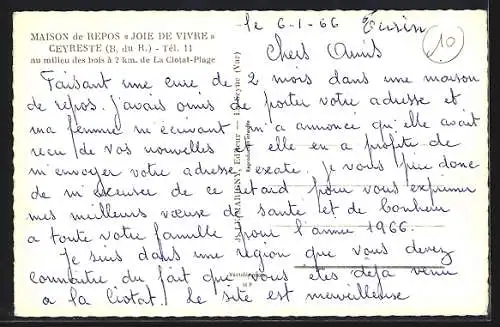 MAISON de REPOS « JOIE DE VIVRE »
CEYRESTE (B. du R.) - Tél. 11
au milieu des bois à 2 km. de La Ciotat-Plage
le 6-1-66
10
Chers Amis
Faisant une cure de 2 mois dans une maison
de repos. j'avais omis de porter votre adresse et
ma femme m'écrivant m'a annoncé qu'elle avait
recu de vos nouvelles et elle en a profité de
m'envoyer votre adresse exate. Je vous prie donc
de m'excuser de ce retard pour vous exprimer
mes meilleurs vœux de santé et de bonheur
a toute votre famille pour l'année 1966.
Je suis dans une région que vous devez
connaitre du fait que vous etes déjà venu
a la Ciotat. Le site est merveilleuse
Editeur
(Var)
Reproduction interdite